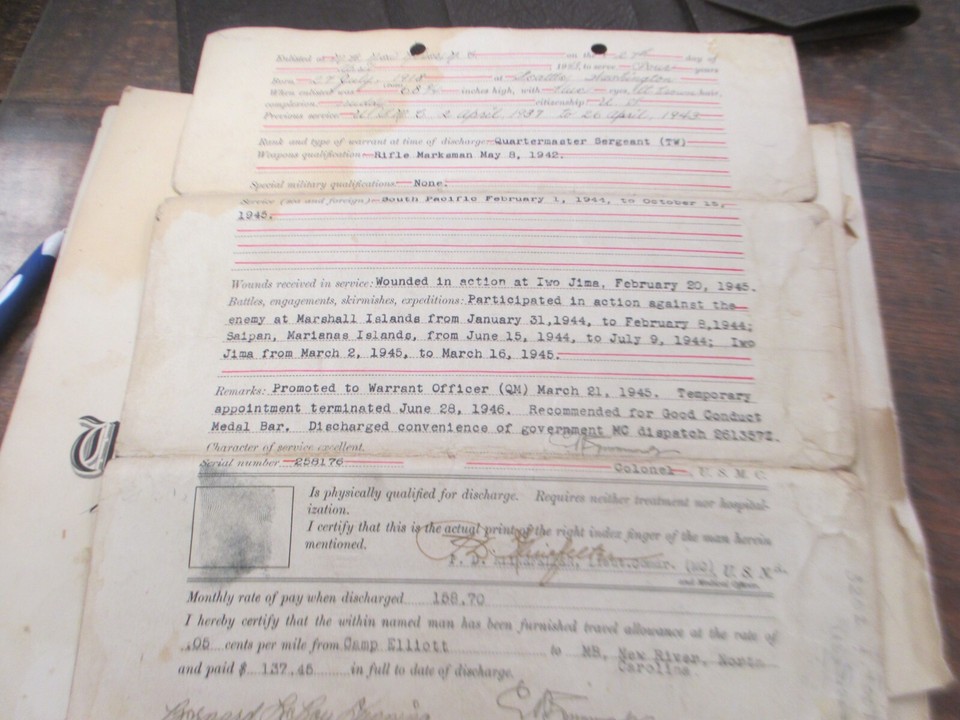 Enlisted at New River, N. C. on the day of
to serve Four years
Born 27 July, 1918 at Seattle, Washington
When enlisted was 68 inches high, with eyes, hair,
complexion, citizenship U. S.
Previous service: 2 April, 1937 to 26 April, 1943
Rank and type of warrant at time of discharge: Quartermaster Sergeant (TW)
Weapons qualification Rifle Marksman May 8, 1942.
Special military qualifications: None.
Service (sea and foreign): South Pacific February 1, 1944, to October 15,
1945.
Wounds received in service: Wounded in action at Iwo Jima, February 20, 1945.
Battles, engagements, skirmishes, expeditions: Participated in action against the
enemy at Marshall Islands from January 31,1944, to February 8,1944;
Saipan, Marianas Islands, from June 15, 1944, to July 9, 1944; Iwo
Jima from March 2, 1945, to March 16, 1945.
Remarks: Promoted to Warrant Officer (QM) March 21, 1945. Temporary
appointment terminated June 28, 1946. Recommended for Good Conduct
Medal Bar. Discharged convenience of government MC dispatch 261357Z.
Character of service excellent.
Serial number 258176 Colonel, U. S. M. C.
Is physically qualified for discharge. Requires neither treatment nor hospital-
ization.
I certify that this is the actual print of the right index finger of the man herein
mentioned.
Lieut.Comdr. (MC) U. S. N.
Monthly rate of pay when discharged 158.70
I hereby certify that the within named man has been furnished travel allowance at the rate of
.05 cents per mile from Camp Elliott to MB, New River, North
Carolina
and paid $ 137.45 in full to date of discharge.